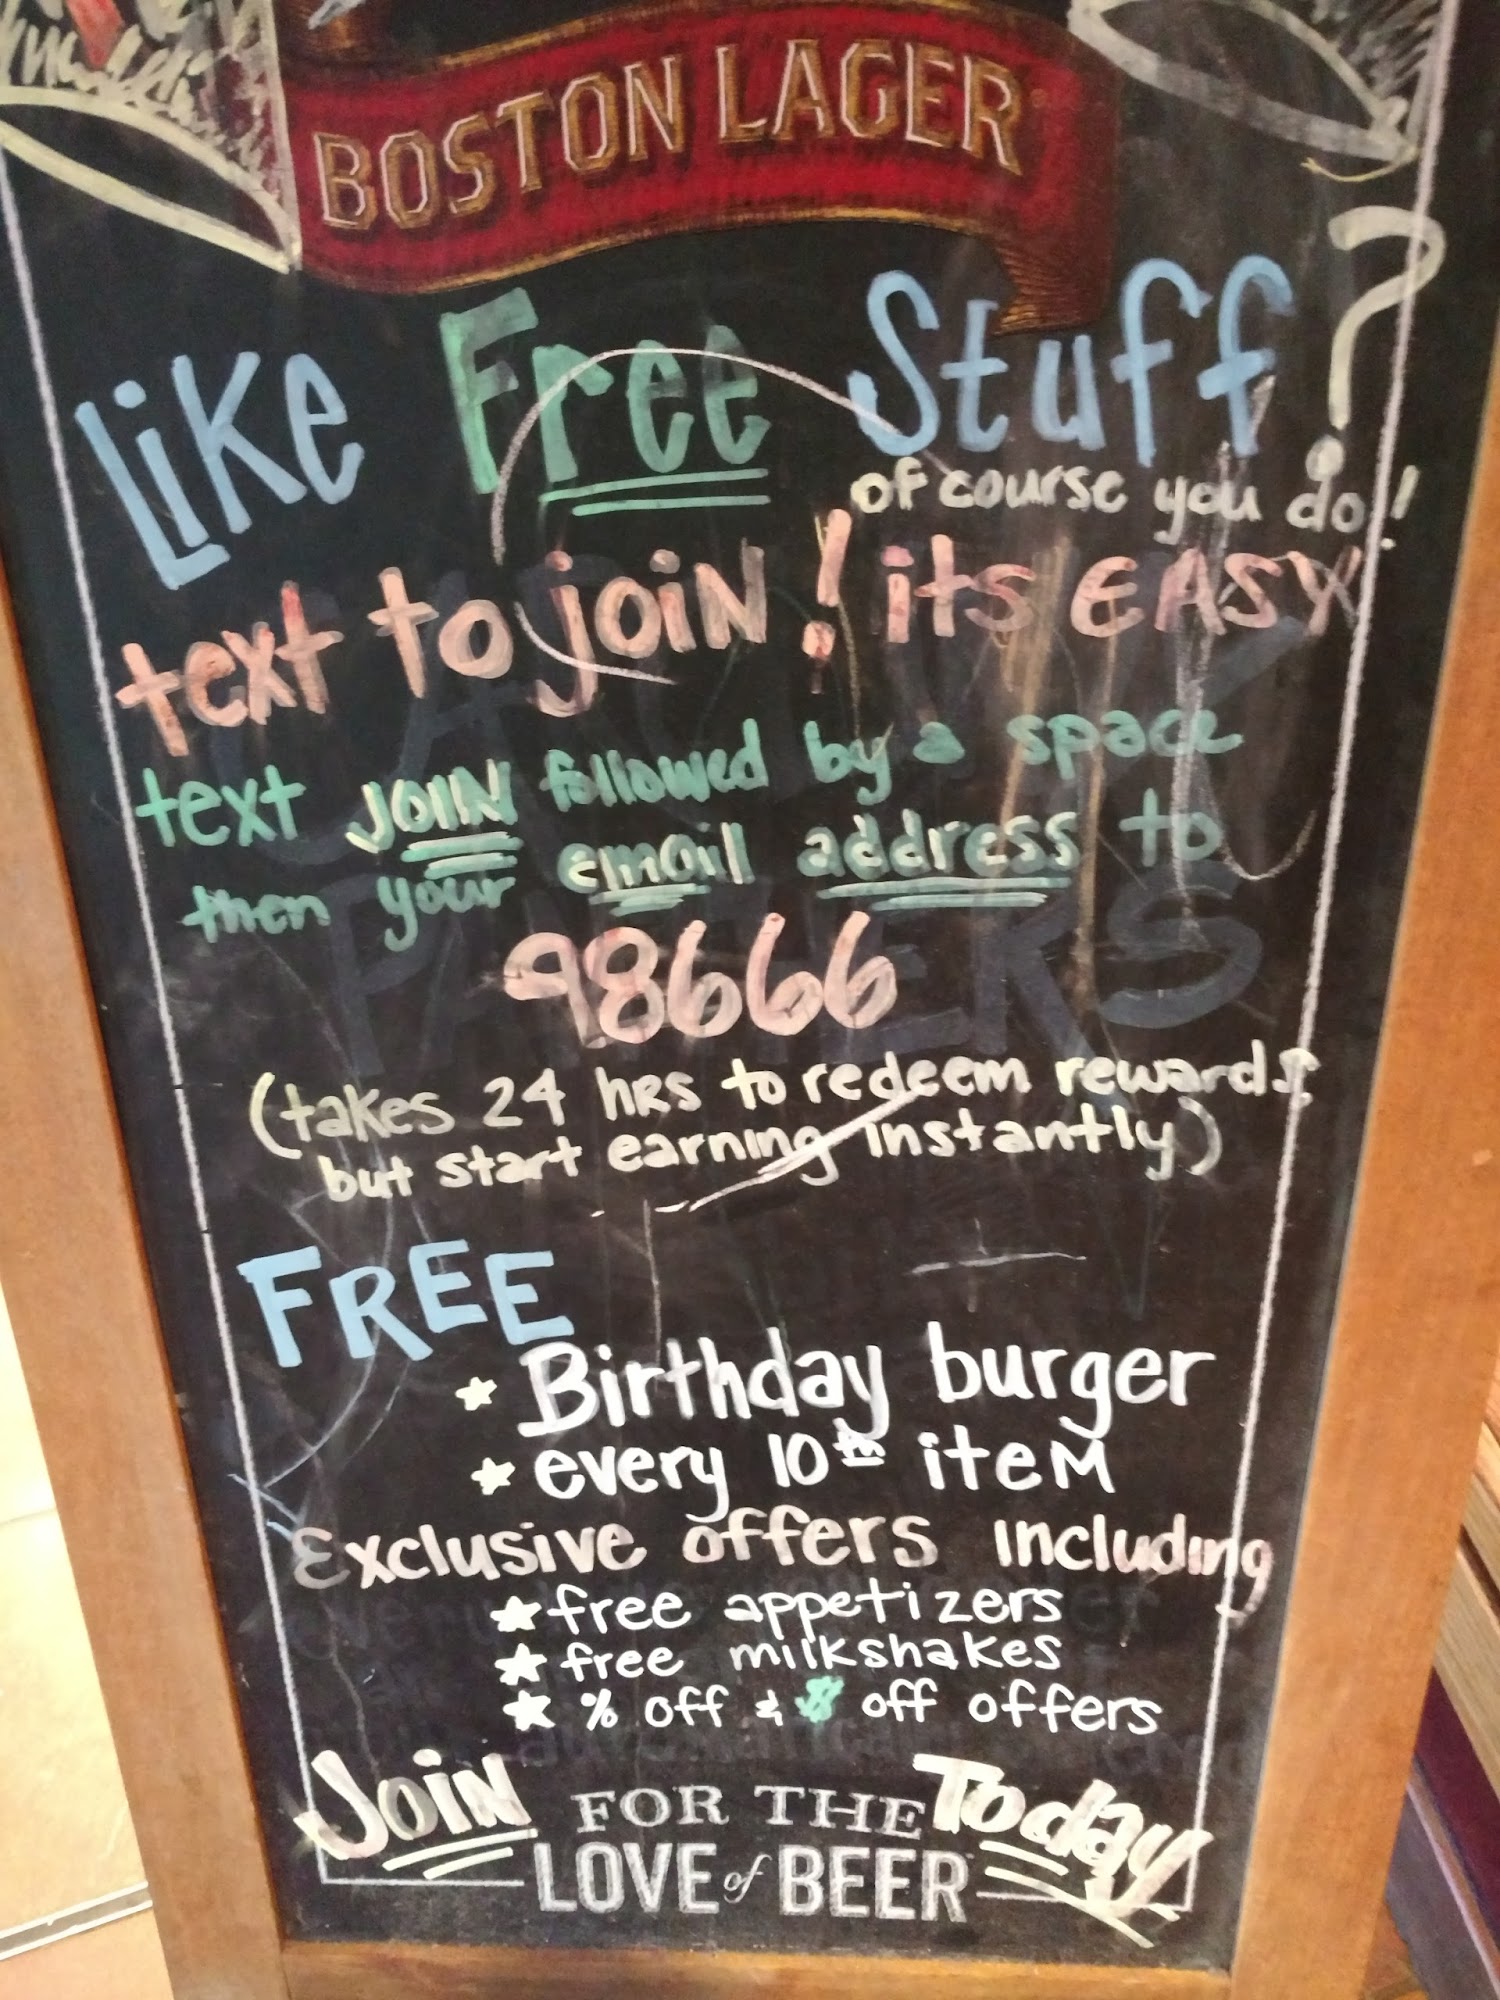 BOSTON LAGER
Like Free Stuff?
of course you do!
text to join! its EASY
text JOIN followed by a space
then your email address to
98666
(takes 24 hrs to redeem rewards
but start earning instantly)
FREE
★ Birthday burger
★ every 10th item
Exclusive offers including
★ free appetizers
★ free milkshakes
★ % off & $ off offers
Join Today
FOR THE
LOVE of BEER